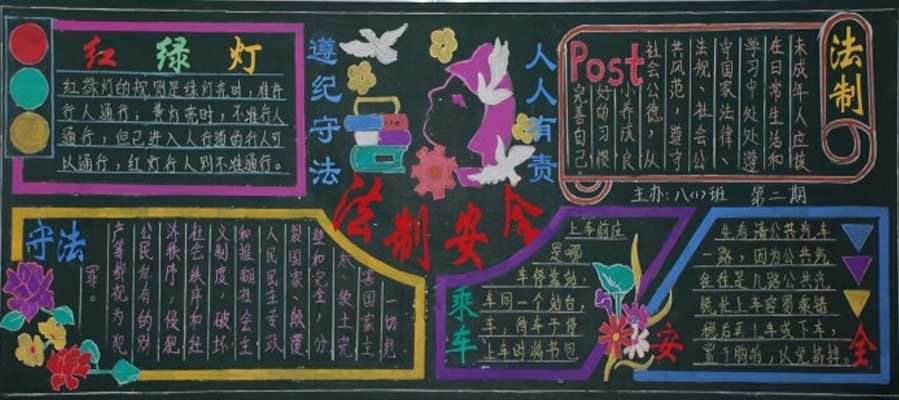 红绿灯
红绿灯的规则是绿灯亮时,准许
行人通行;黄灯亮时,不准行人
通行,但已进入人行道的行人可
以通行,红灯行人则不准通行。
遵纪守法
人人有责
法制安全
Post
法制
未成年人应该
在日常生活和
学习中处处遵
守国家法律、
法规、社会公
共风范,遵守
社会公德,从
小养成良
好的习惯
完善自己
主办:八(1)班 第二期
守法
一切危
害国家主
权、领土完
整和完全,分
裂国家、颠覆
人民民主专政
和推翻社会主
义制度,破坏
社会秩序和经
济秩序,侵犯
公民私有的财
产等都视为犯
罪。
乘车
上车前应
是哪
车停靠站
车同一个站台,
车,待车子停
上车时将书包
安全
先看清公共汽车
一路,因为公共汽
往往是几路公共汽
上车容易乘错
稳后再上车或下车,
置于胸前,以免挤掉。